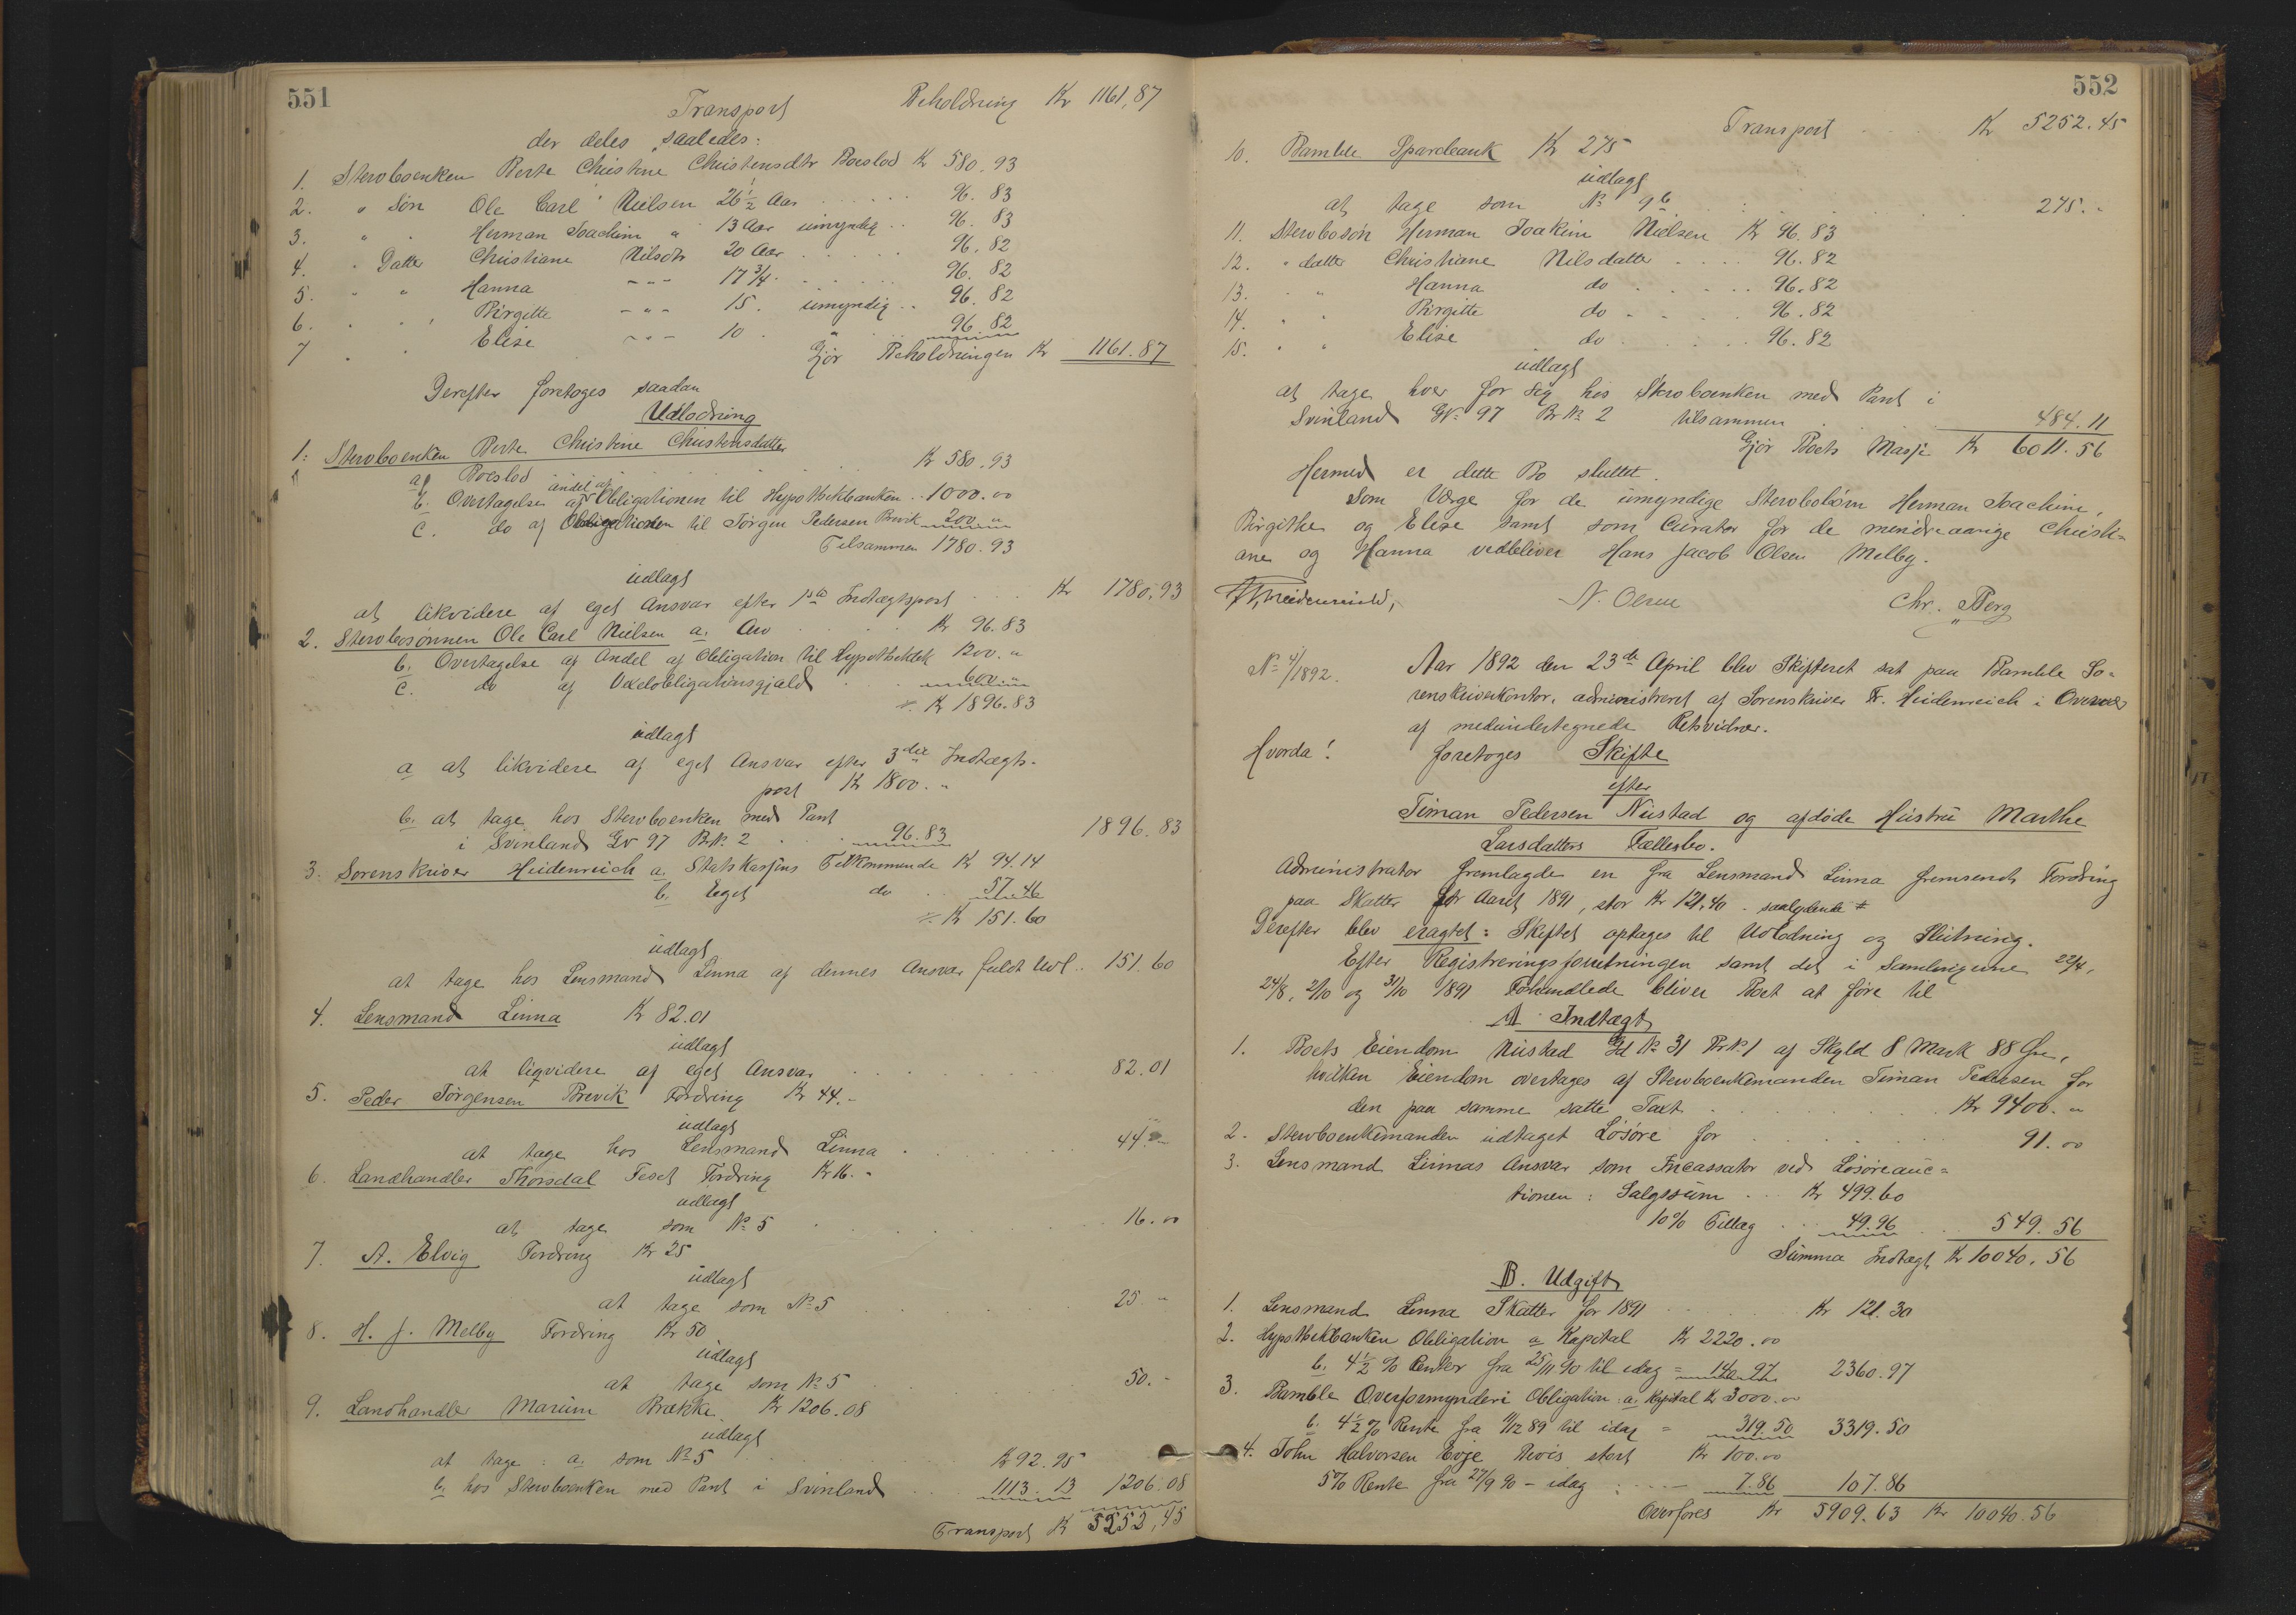 551
Transport Beholdning Kr 1161,87
der deles saaledes:
1. Stervboenken Berte Christine Christensdtr Boeslod Kr 580.93
2. " Søn Ole Carl Nielsen 26 1/2 Aar 96.83
3. " " Herman Joachim " 13 Aar umyndig 96.83
4. " Datter Christiane Nilsdtr 20 Aar 96.82
5. " " Hanna - " - 17 3/4 96.82
6. " " Birgitte - " - 15. umyndig 96.82
7 " " Elise - " - 10 " 96.82
Gjør Beholdningen Kr 1161.87
Derefter foretoges saadan
Udlodning
1. Stervboenken Berte Christine Christensdatter
a Boeslod Kr 580.93
b. Overtagelsen af andel af Obligationen til Hypothekbanken 1000.00
c. do af Obligationen til Jørgen Pedersen Brevik 200 "
Tilsammen 1780.93
udlagt
at likvidere af eget Ansvar efter 1ste Indtægtspost Kr 1780.93
2. Stervbosønnen Ole Carl Nielsen a. Arv Kr 96.83
b. Overtagelse af Andel af Obligation til Hypothekbk 1200. "
c. do af Vexelobligationsgjæld 600. "
Kr 1896.83
udlagt
a at likvidere af eget Ansvar efter 3die Indtægts-
post Kr 1800. "
b. at tage hos Stervboenken med Pant
i Svinland Gr 97 BrNo 2 96.83 1896.83
3. Sorenskriver Heidenreich a. Statskassens Tilkommende Kr 94.14
b. Eget do 57.46
Kr 151.60
udlagt
at tage hos Lensmand Linna af dennes Ansvar fuldt Udl. 151.60
4. Lensmand Linna Kr 82.01
udlagt
at liqvidere af eget Ansvar 82.01
5. Peder Jørgensen Brevik Fordring Kr 44.-
udlagt
at tage hos Lensmand Linna 44.-
6. Landhandler Thorsdal Fordring Kr 16.-
udlagt
at tage som No 5 16.00
7. A. Elvig Fordring Kr 25
udlagt
at tage som No 5 25 "
8. H. J. Melby Fordring Kr 50
udlagt
at tage som No 5 50.-
9. Landhandler Brække Kr 1206.08
udlagt
at tage: a. som No 5 Kr 92.95
b. hos Stervboenken med Pant i Svinland 1113.13 1206.08
Transport Kr 5252,45
552
Transport Kr 5252.45
10. Bamble Sparebank Kr 275
udlagt
at tage som No 9b 275.-
11. Stervbosøn Herman Joakim Nielsen Kr 96.83
12. " datter Christiane Nilsdatter 96.82
13. " " Hanna do 96.82
14. " " Birgitte do 96.82
15. " " Elise do 96.82
udlagt
at tage hver for sig hos Stervboenken med Pant i
Svinland GNo 97 BrNo 2 tilsammen 484.11
Gjør Boets Masse Kr 6011.56
Hermed er dette Bo sluttet.
Som Værge for de umyndige Stervbobørn Herman Joachim,
Birgithe og Elise samt som Curator for de mindreaarige Christi-
ane og Hanna vedbliver Hans Jacob Olsen Melby.
Heidenreich, N. Olsen Chr. Berg
No 4/1892. Aar 1892 den 23de April blev Skifteret sat paa Bamble So-
renskriverkontor, administreret af Sorenskriver Fr. Heidenreich i Overvær
af medundertegnede Retsvidner.
Hvorda! foretoges Skifte
efter
Timan Pedersen Nustad og afdøde Hustru Marthe
Larsdatters Fællesbo.
Administrator fremlagde en fra Lensmand Linna fremsendt Fordring
paa Skatter for Aaret 1891, stor Kr 121.40. saalydende #
Derefter blev eragtet: Skiftet optages til Udlodning og Slutning.
Efter Registreringsforretningen samt det i Samlingerne 22/4,
24/8, 2/10 og 31/10 1891 Forhandlede bliver Boet at føre til
A Indtægt
1. Boets Eiendom Nustad Gd No 31 BrNo 1 af Skyld 8 Mark 88 Øre,
hvilken Eiendom overtages af Stervboenkemanden Timan Pedersen for
den paa samme satte Taxt Kr 9400. "
2. Stervboenkemanden udtaget Løsøre for 91.00
3. Lensmand Linnas Ansvar som Incassator ved Løsøreauc-
tionen: Salgssum Kr 499.60
10% Tillæg 49.96 549.56
Summa Indtægt Kr 10040.56
B. Udgift
1. Lensmand Linna Skatter for 1891 Kr 121.30
2. Hypothekbanken Obligation a Kapital Kr 2220.00
b. 4 1/2 % Renter fra 25/11 90 til idag = 140.97 2360.97
3. Bamble Overformynderi Obligation: a. Kapital Kr 3000.00
b. 4 1/2 % Rente fra 9/12 89 til idag = 319.50 3319.50
4. John Halvorsen Evje stort Kr 100.00
5% Rente fra 27/9 90 - idag 7.86 107.86
Overføres Kr 5909.63 Kr 10040.56